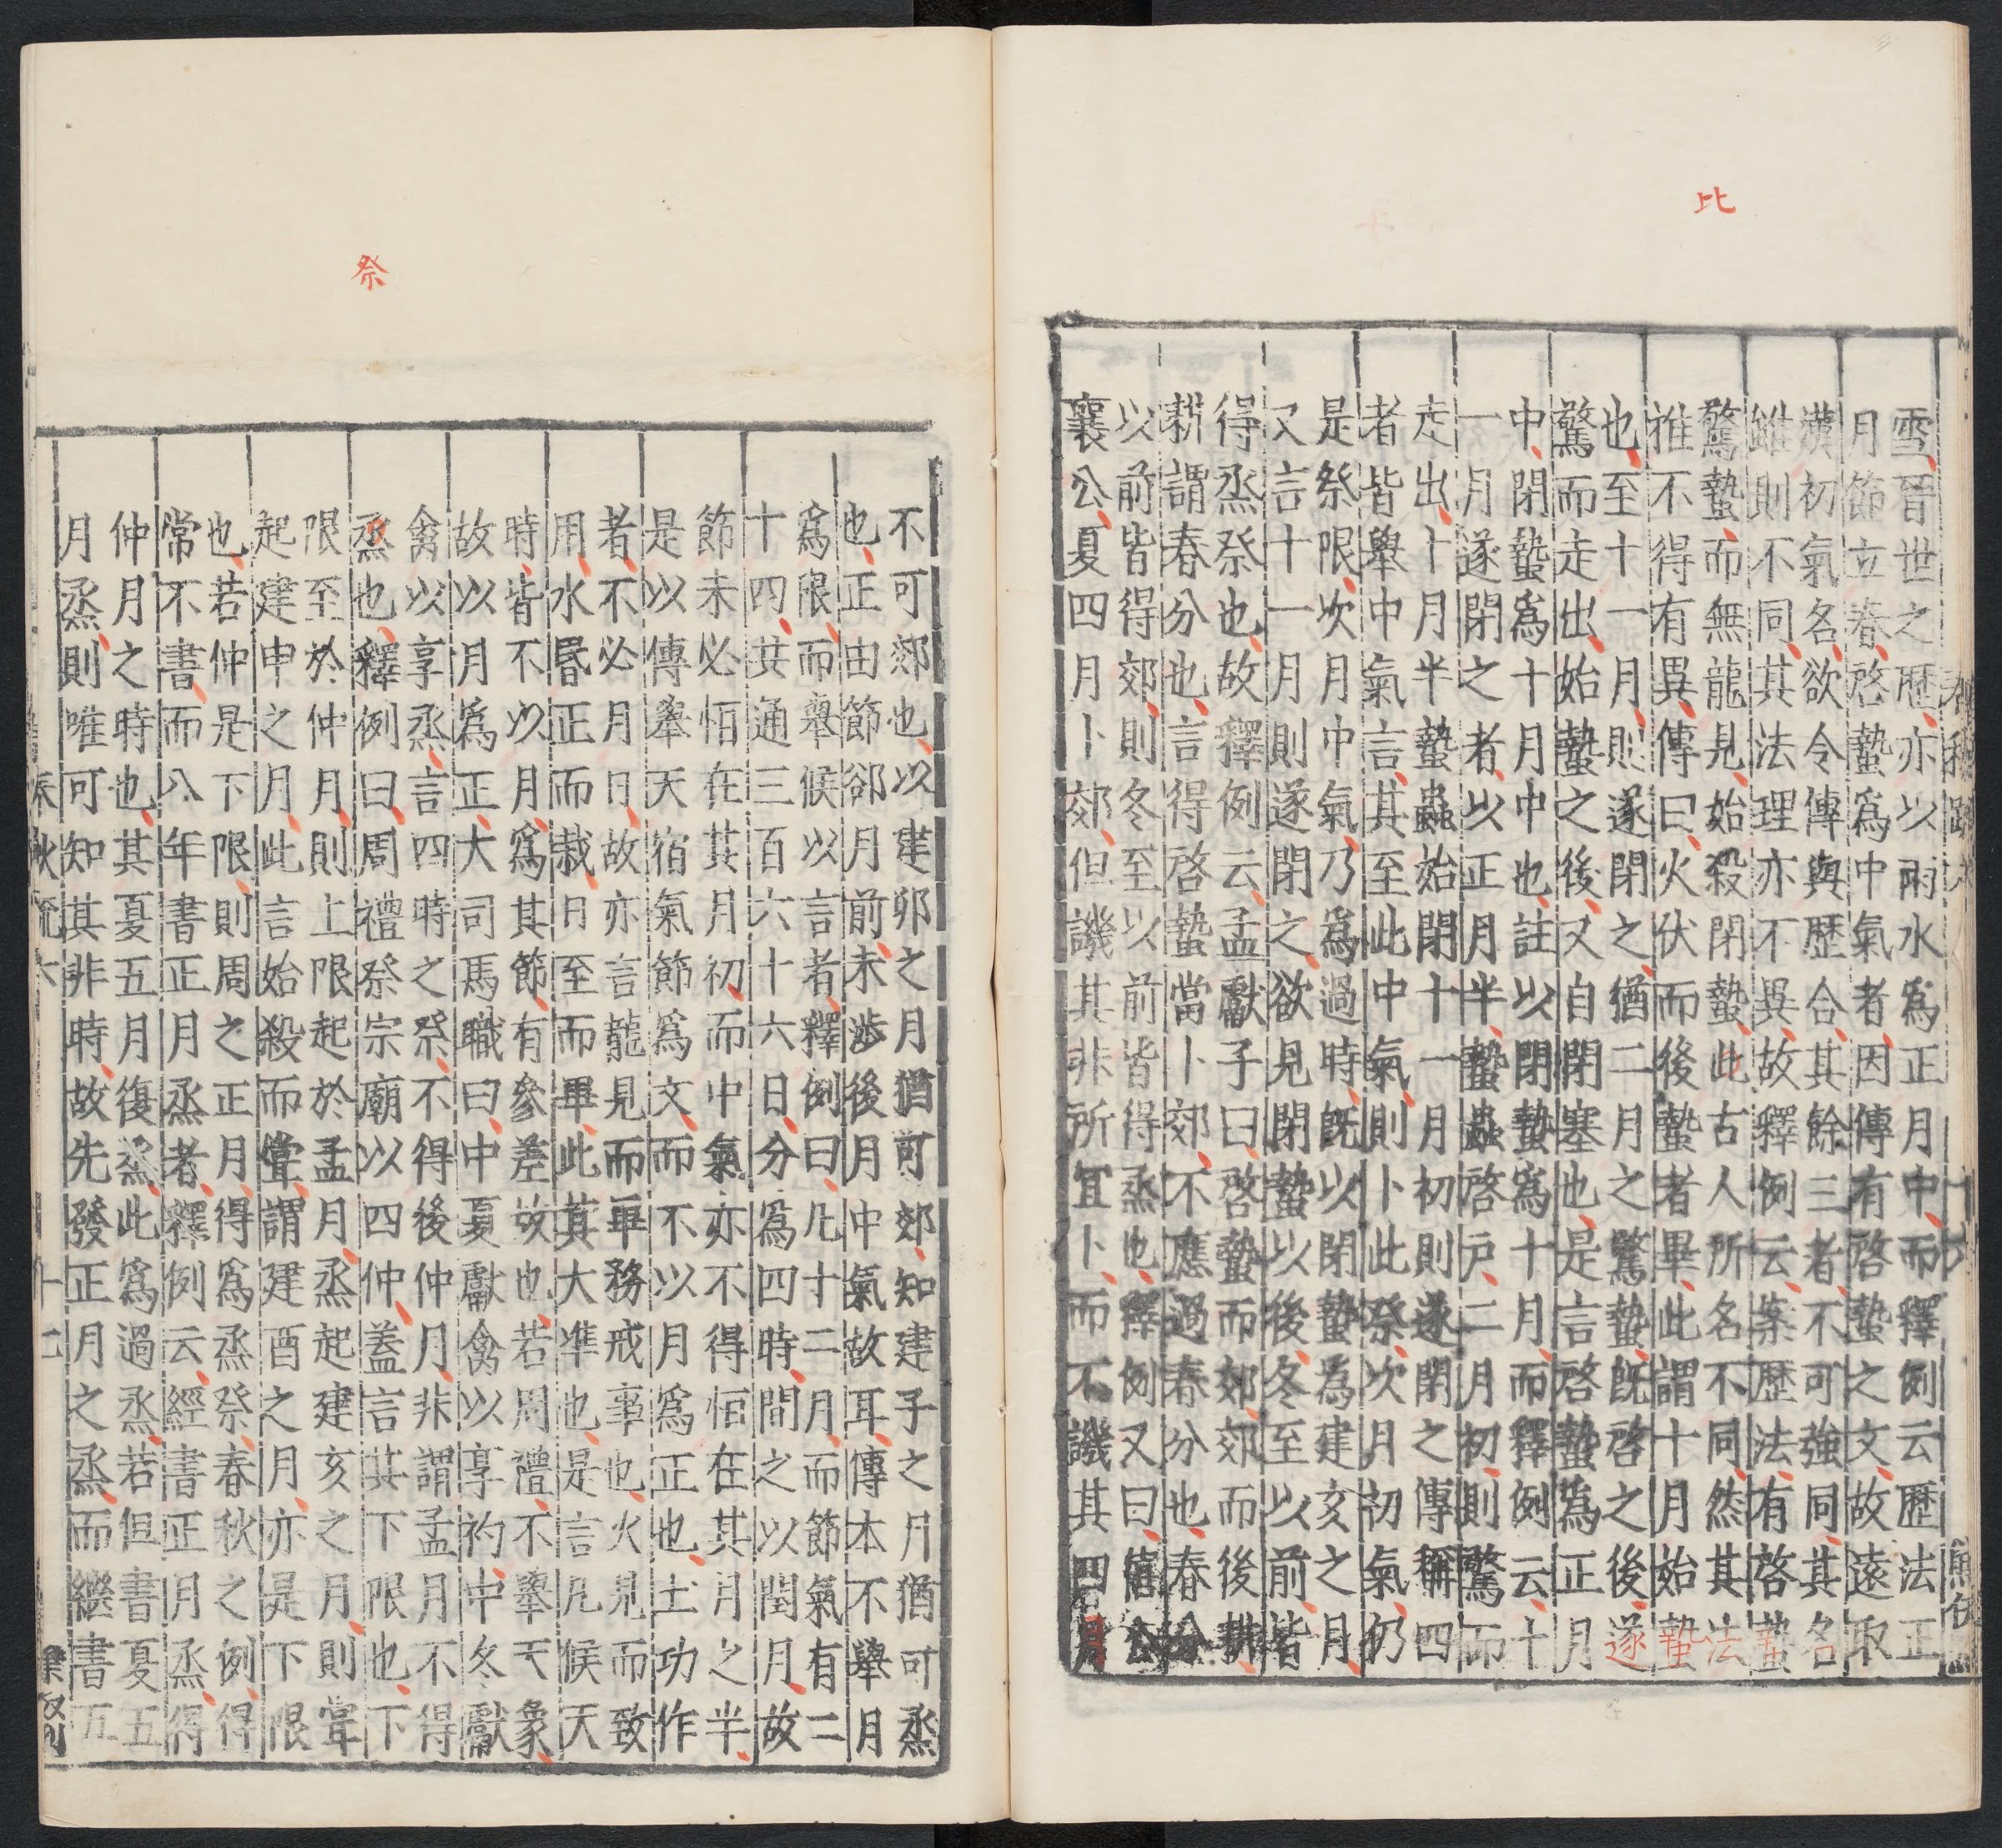 比
雪晉世之歷亦以雨水爲正月中而釋例云歷法正
月節立春啓蟄爲中氣者因傳有啓蟄之文故遠取
漢初氣名欲令傳與歷合其餘三者不可強同其名
雖則不同其法理亦不異故釋例云案歷法有啓蟄
驚蟄而無龍見始殺閉蟄此古人所名不同然其法
推不得有異傳曰火伏而後蟄者畢此謂十月始蟄
也至十一月則遂閉之猶二月之驚蟄既啓之後遂
驚而走出始蟄之後又自閉塞也是言啓蟄爲正月
中閉蟄爲十月中也註以閉蟄爲十月而釋例云十
一月遂閉之者以正月半蟄蟲啓戸二月初則驚而
走出十月半蟄蟲始閉十一月初則遂閉之傳稱四
者皆舉中氣言其至此中氣則卜此祭次月初氣仍
是祭限次月中氣乃爲過時既以閉蟄爲建亥之月
又言十一月則遂閉之欲見閉蟄以後冬至以前皆
得烝祭也故釋例云孟獻子曰啓蟄而郊郊而後耕
耕謂春分也言得啓蟄當卜郊不應過春分也春分
以前皆得郊則冬至以前皆得烝也釋例又曰僖公
襄公夏四月卜郊但譏其非所宜卜而不譏其四月
祭
不可郊也以建卯之月猶可郊知建子之月猶可烝
也正由節郤月前未涉後月中氣故耳傳本不舉月
爲限而舉候以言者釋例曰凡十二月而節氣有二
十四共通三百六十六日分爲四時間之以閏月故
節未必恒在其月初而中氣亦不得恒在其月之半
是以傳舉天宿氣節爲文而不以月爲正也土功作
者不必月日故亦言龍見而畢務戒事也火見而致
用水昏正而栽日至而畢此其大凖也是言凡候天
時皆不以月爲其節有參差故也若周禮不舉天象
故以月爲正大司馬職曰中夏獻禽以享礿中冬獻
禽以享烝言四時之祭不得後仲月非謂孟月不得
烝也釋例曰周禮祭宗廟以四仲蓋言其下限也下
限至於仲月則上限起於孟月烝起建亥之月則嘗
起建申之月此言始殺而嘗謂建酉之月亦是下限
也若仲是下限則周之正月得爲烝祭春秋之例得
常不書而八年書正月烝者釋例云經書正月烝得
仲月之時也其夏五月復烝此爲過烝若但書夏五
月烝則唯可知其非時故先發正月之烝而繼書五
春秋疏六
十二